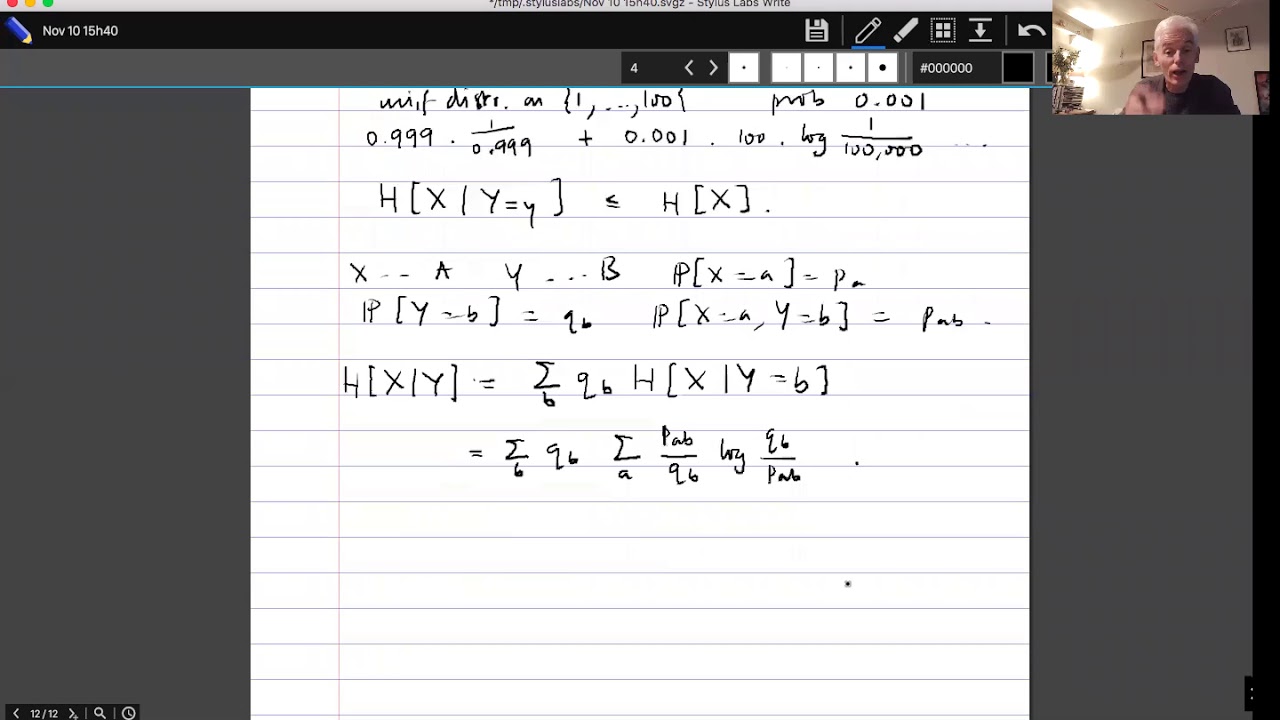 */tmp/.styluslabs/Nov 10 15h40.svgz - Stylus Labs Write
Nov 10 15h40
4 #000000
unif distr. on {1,...,100{ prob 0.001
0.999 . 1/0.999 + 0.001 . 100 . log 1/100,000 ...
H[X|Y=y] ≤ H[X].
X ... A Y ... B ℙ[X=a]=p_a
ℙ[Y=b] = q_b ℙ[X=a, Y=b] = p_ab .
H[X|Y] := ∑_b q_b H[X|Y=b]
= ∑_b q_b ∑_a p_ab/q_b log q_b/p_ab .
12/12